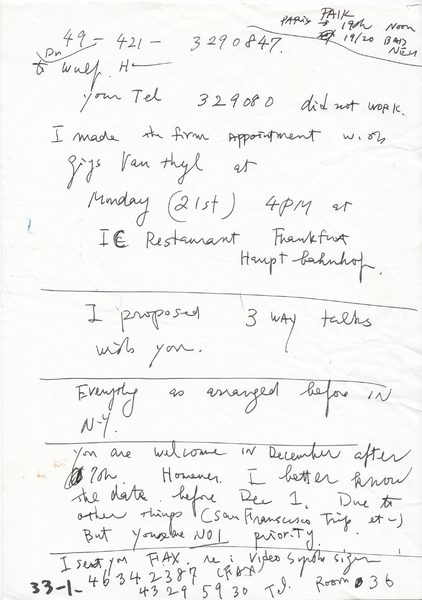 PARIS PAIK
19th Noon
19/20 BAD
49-421-3290847.
Dr
to Wulf. H
your Tel 329080 did not WORK.
I made the firm Appointment with
gijs Van thyl at
Monday (21st) 4PM at
IC Restaurant Frankfurt
Haupt bahnhof.
I proposed 3 WAY talks
with you.
Everything as arranged before IN
N.Y.
You are welcome IN December after
However I better know
the date before Dec 1. Due to
other things (San Franscisco Trip etc)
But you are NO1 priority.
I sent you FAX. re: Video
33-1- 46342387 (FAX)
4329 5930 Tel. Room 36